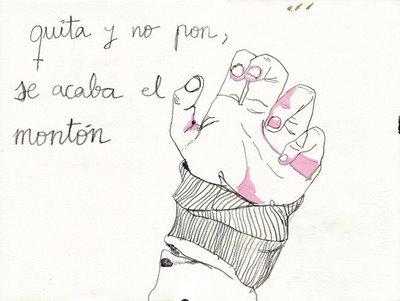 quita y no pon,
y
se acaba el
montón